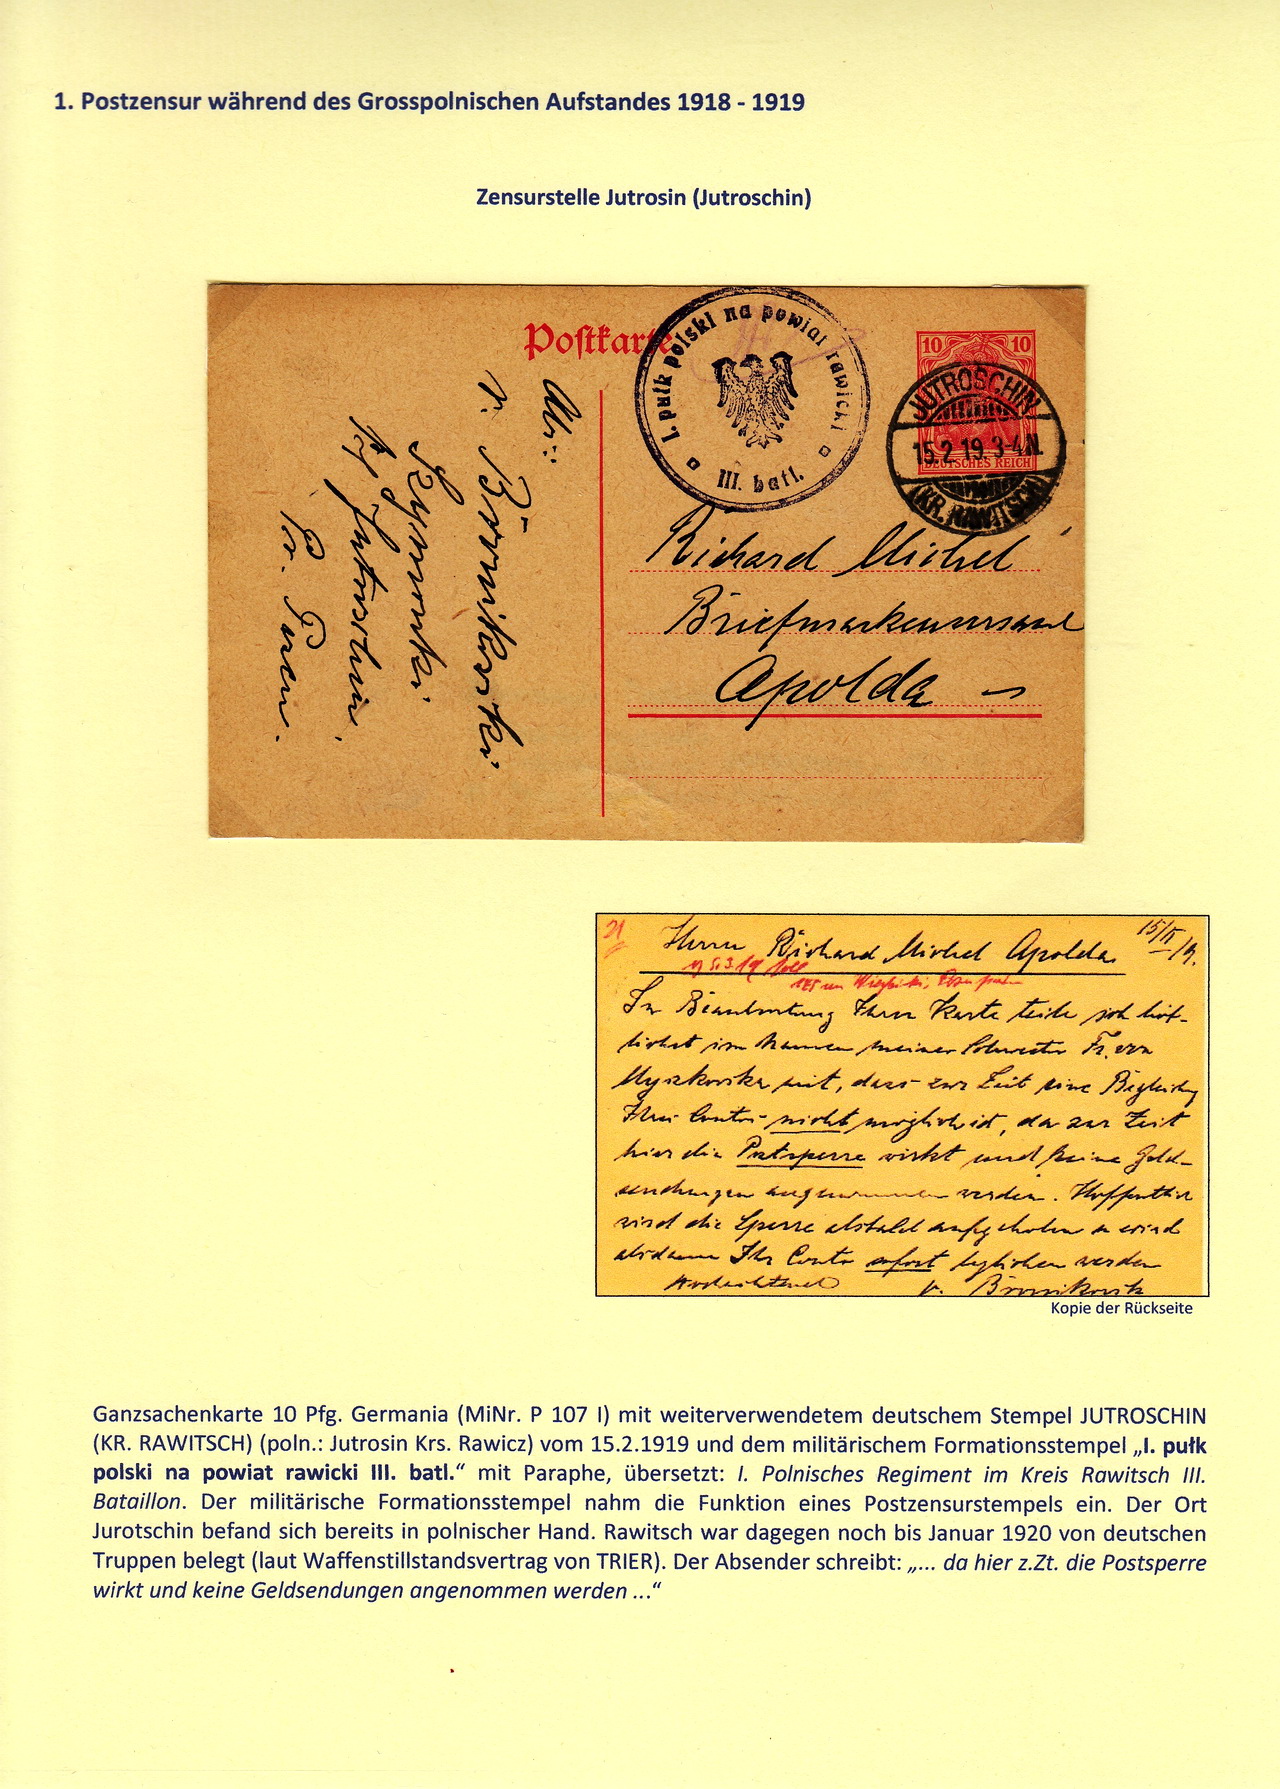 1. Postzensur während des Grosspolnischen Aufstandes 1918 - 1919
Zensurstelle Jutrosin (Jutroschin)
Postkarte
I. pułk polski na powiat rawicki
III. batl.
10 10
DEUTSCHES REICH
JUTROSCHIN
15.2.19. 3-4N.
(KR. RAWITSCH)
Richard Michel
Briefmarkenversand
Apolda
v. Bronikowski
Jutroschin
Pr. Posen.
21
15/II 19.
Herrn Richard Michel Apolda
In Beantwortung Ihrer Karte teile ich höf-
lichst im Namen meiner Schwester Fr. von
Myszkowska mit, dass zur Zeit eine Begleichung
Ihres Contos nicht möglich ist, da zur Zeit
hier die Postsperre wirkt und keine Geld-
sendungen angenommen werden. Hoffentlich
wird die Sperre alsbald aufgehoben u wird
alsdann Ihr Conto sofort beglichen werden
Hochachtend v. Bronikowski
Kopie der Rückseite
Ganzsachenkarte 10 Pfg. Germania (MiNr. P 107 I) mit weiterverwendetem deutschem Stempel JUTROSCHIN
(KR. RAWITSCH) (poln.: Jutrosin Krs. Rawicz) vom 15.2.1919 und dem militärischem Formationsstempel „I. pułk
polski na powiat rawicki III. batl.“ mit Paraphe, übersetzt: I. Polnisches Regiment im Kreis Rawitsch III.
Bataillon. Der militärische Formationsstempel nahm die Funktion eines Postzensurstempels ein. Der Ort
Jurotschin befand sich bereits in polnischer Hand. Rawitsch war dagegen noch bis Januar 1920 von deutschen
Truppen belegt (laut Waffenstillstandsvertrag von TRIER). Der Absender schreibt: „... da hier z.Zt. die Postsperre
wirkt und keine Geldsendungen angenommen werden ...“